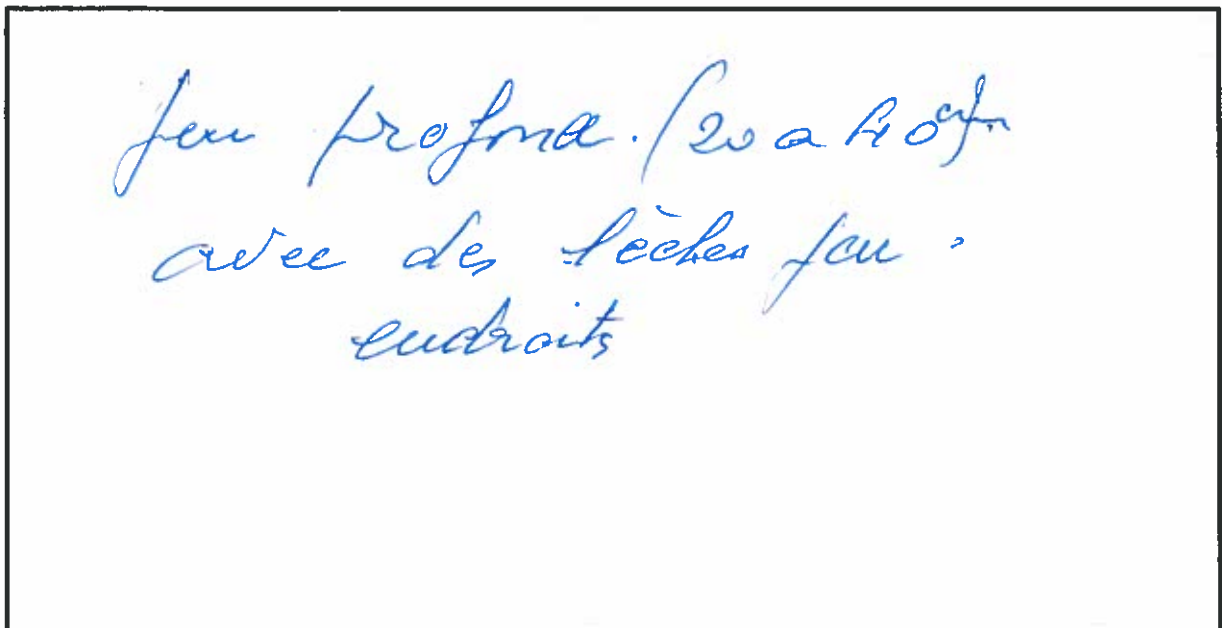 peu profond. (20 a 40 cm)
avec des lèches par
endroits